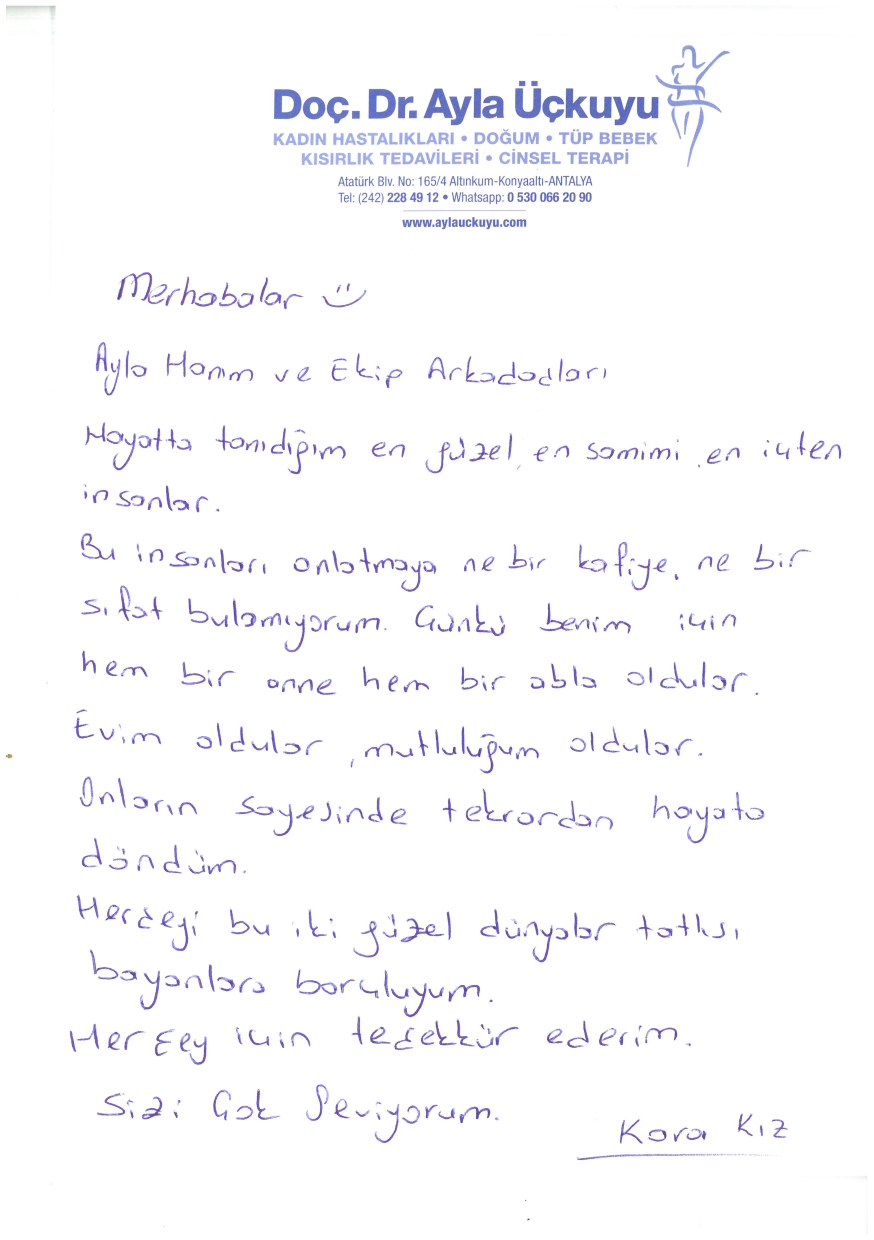 Doç. Dr. Ayla Üçkuyu
KADIN HASTALIKLARI • DOĞUM • TÜP BEBEK
KISIRLIK TEDAVİLERİ • CİNSEL TERAPİ
Atatürk Blv. No: 165/4 Altınkum-Konyaaltı-ANTALYA
Tel: (242) 228 49 12 • Whatsapp: 0 530 066 20 90
www.aylauckuyu.com
Merhabalar :)
Ayla Hanım ve Ekip Arkadaşları
Hayatta tanıdığım en güzel, en samimi, en içten
insanlar.
Bu insanları anlatmaya ne bir kafiye, ne bir
sıfat bulamıyorum. Çünkü benim için
hem bir anne hem bir abla oldular.
Evim oldular, mutluluğum oldular.
Onların sayesinde tekrardan hayata
döndüm.
Herşeyi bu iki güzel dünyalar tatlısı
bayanlara borçluyum.
Her şey için teşekkür ederim.
Sizi Çok Seviyorum.
Kara Kız